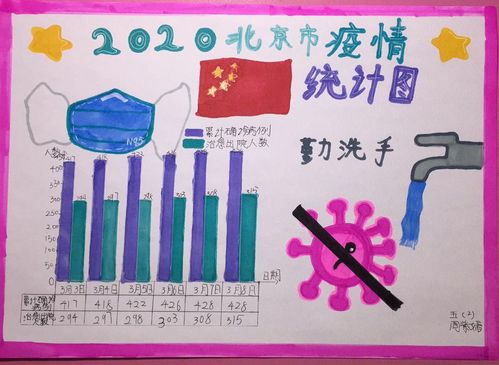 2020北京市疫情
统计图
N95
累计确诊病例
治愈出院人数
勤洗手
人数
400
350
300
250
200
150
100
50
0
417 418 422 426 428 428
294 297 298 303 308 315
日期
3月3日 3月4日 3月5日 3月6日 3月7日 3月8日
累计确诊病例 417 418 422 426 428 428
治愈出院人数 294 297 298 303 308 315
五(2)